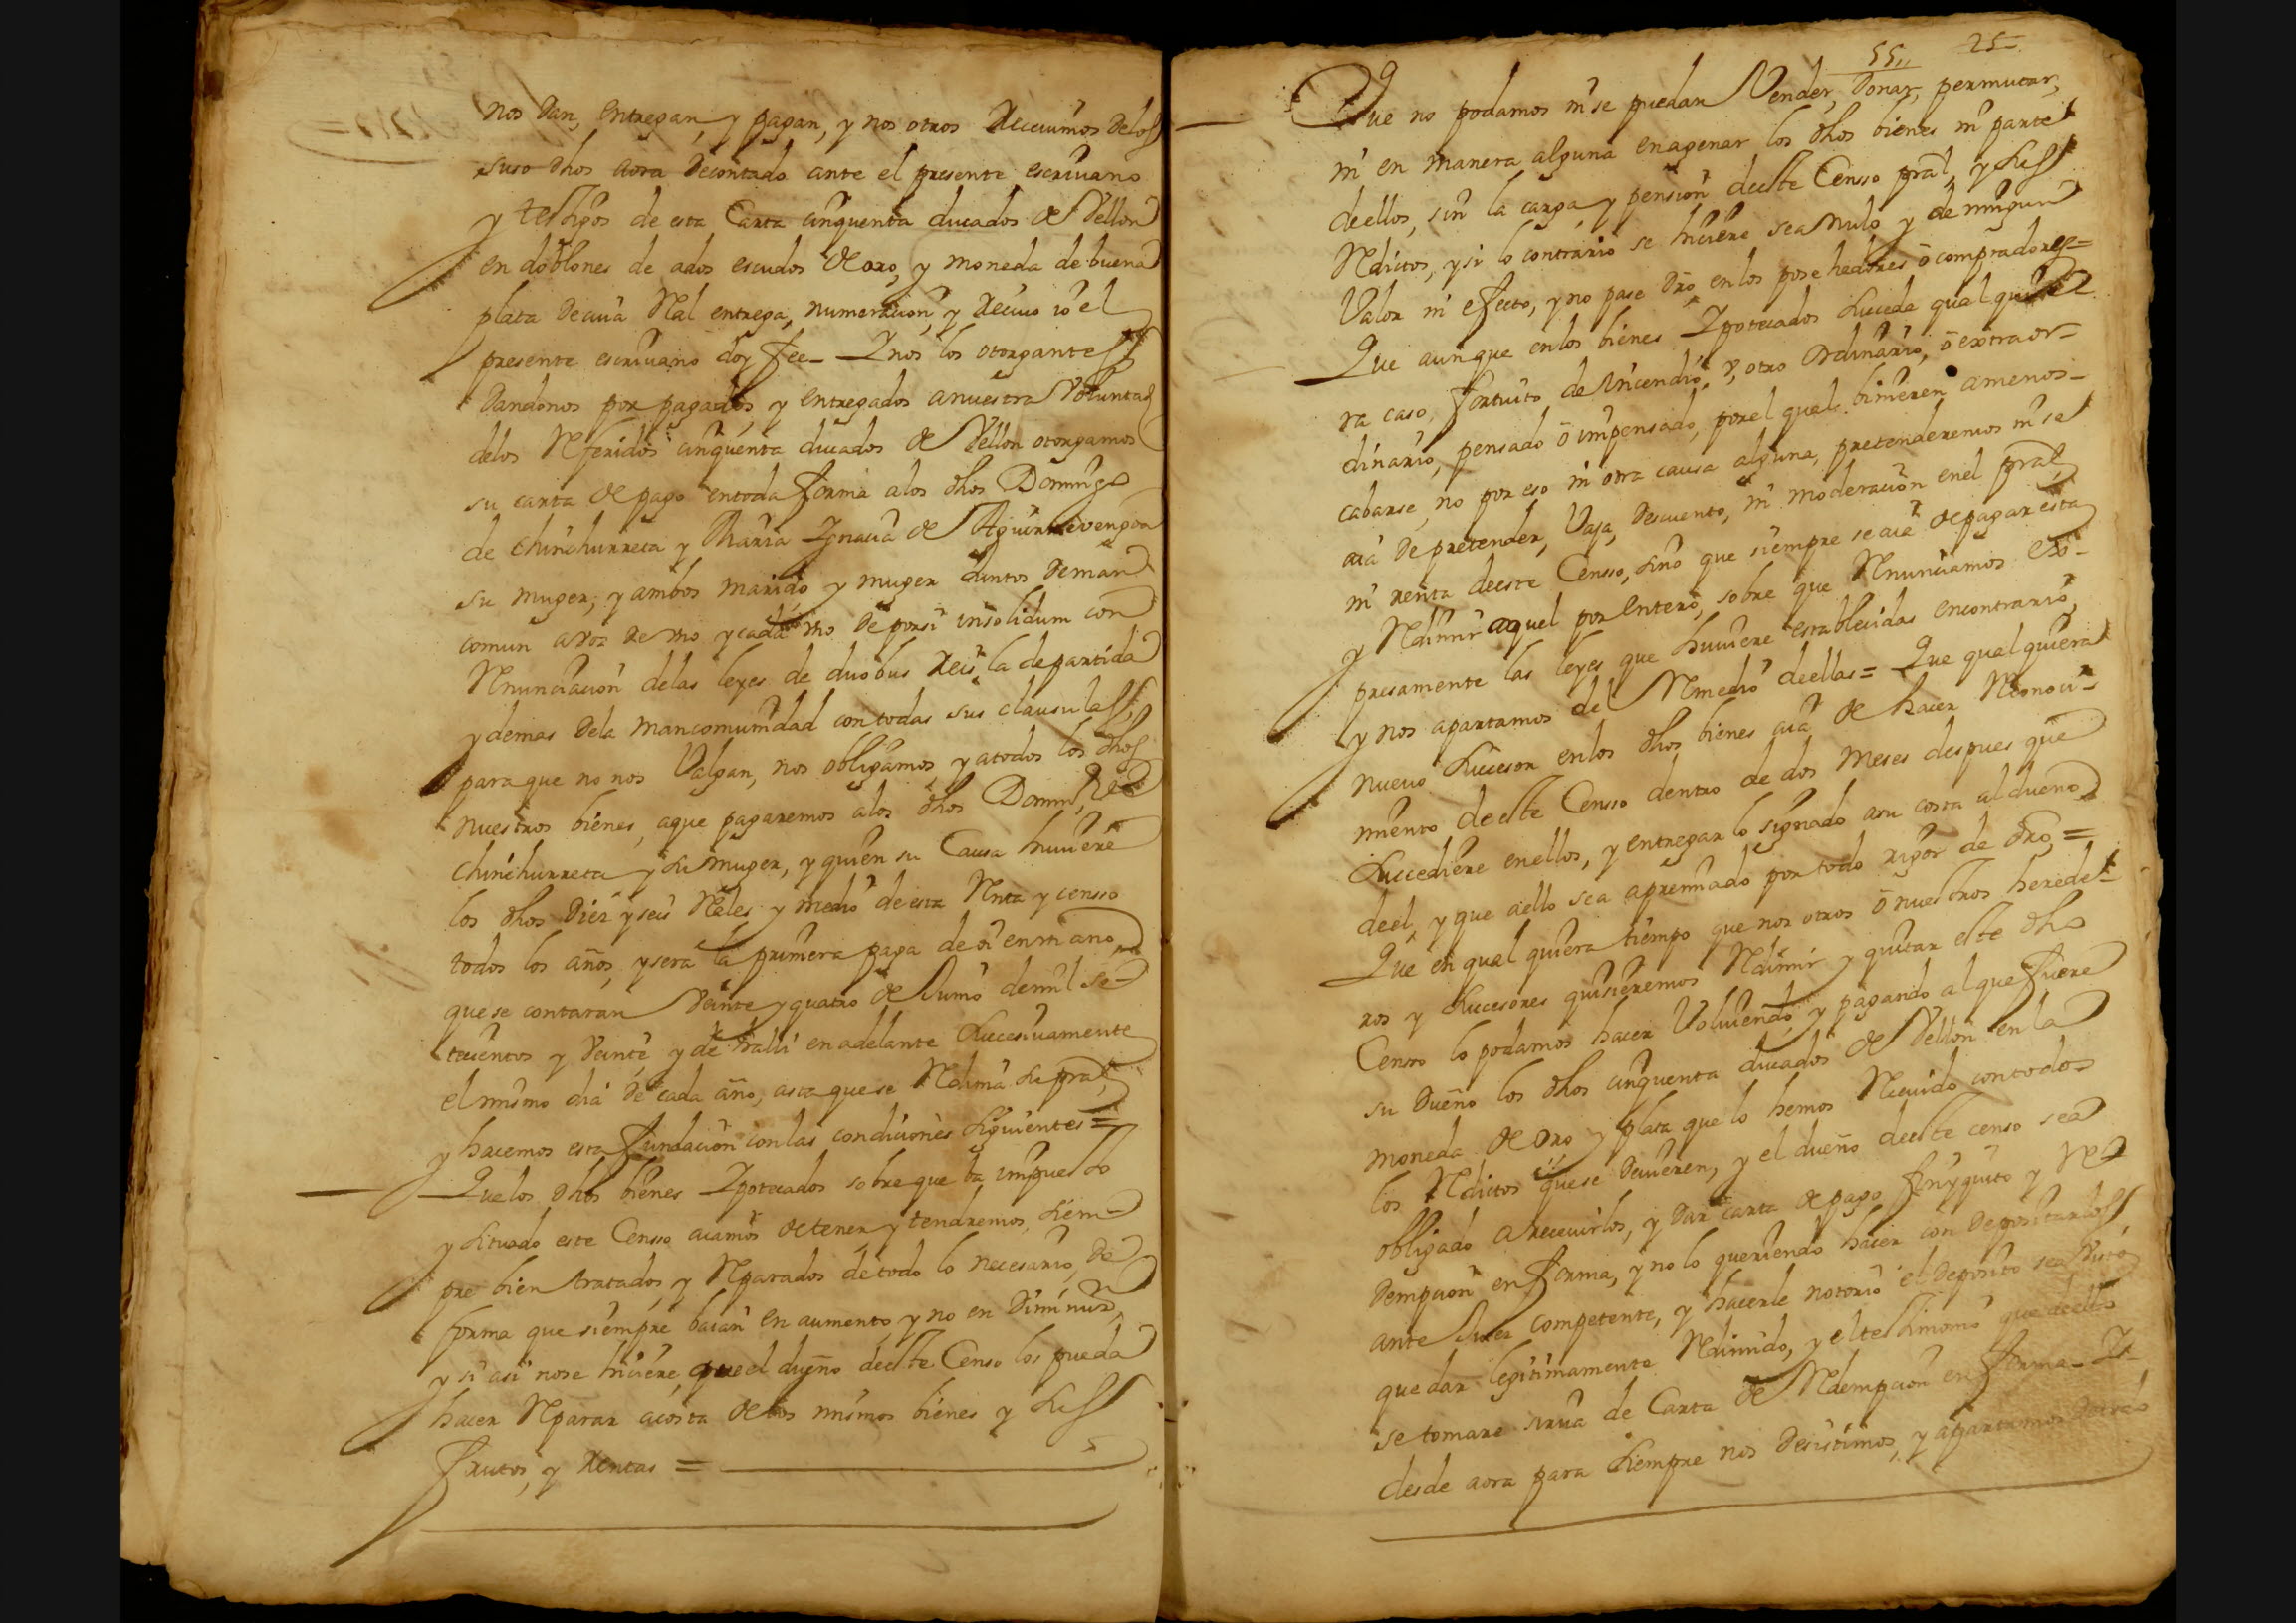 nos dan, entregan, y pagan, y nos otros Recevimos delos
suso dhos aora decontado ante el presente escrivano
y testigos de esta Carta cinquenta ducados de Vellon
en doblones de ados escudos de oro, y moneda de buena
plata de cuia Ral entrega, numeracion, y Recivo io el
presente escrivano doy fee_ Y nos los otorgantes
dandonos por pagados, y entregados anuestra Voluntad
delos Referidos cinquenta ducados de Vellon otorgamos
su carta de pago entoda forma alos dhos Domingo
de Chinchurreta y Maria Ygnacia de Aguirre
su muger; y ambos marido y muger juntos deman
comun avoz de vno y cada vno deporsi insolidum con
Renunciacion delas leyes de duobus Reis, la departida
ydemas dela mancomunidad contodas sus clausulas,
para que no nos Valgan, nos obligamos, yatodos los dhos
nuestros bienes, aque pagaremos alos dhos Domingo de
Chinchurreta y su muger, y quien su Causa huviere
los dhos diez y seis Reales y medio de esta Renta y censso
todos los años, y sera la primera paga de oi en vn ano
que se contaran Veinte y quatro de Junio demil se-
tecientos y Veinte, y de halli en adelante sucesivamente
el mismo dia de cada año, asta que se Redima su pral,
y hacemos esta fundacion con las condiciones siguientes =
Que los dhos bienes Ypotecados sobre que ba impuesto
y situado este Censso aiamos de tener, y tendremos siem-
pre bien tratados, y Reparados de todo lo necesario, de
forma que siempre baian en aumento, y no en diminuz.n
y si asi nose hiciere, que el dueño deeste Censo los pueda
hacer Reparar acosta de los mismos bienes y sus
frutos, y Rentas =
55,, 25
Que no podamos ni se puedan Vender, donar, permutar,
ni en manera alguna enagenar los dhos bienes ni parte
deellos, sin la carga, y pension deeste Censso pral, y sus
Reditos, y si lo contrario se hiciere sea Nulo, y de ningun
Valor ni efecto, y no pase dro, en los posehedores ô compradores=
Que aunque enlos bienes Ypotecados suceda qualquie-
ra caso, fortuito de Yncendio, V, otro Ordinario, ô extraor-
dinario, pensado ô impensado, por el qual binieren amenos-
cabarse, no por eso ni otra causa alguna, pretenderemos ni se
aia de pretender, Vaja, descuento, ni moderacion enel pral,
ni renta deeste Censso, sino que siempre se aia de pagar esta
y Redimir aquel por Entero, sobre que Renunciamos Ex-
presamente las leyes que huviere establecidas encontrario,
y nos apartamos del Remedio deellas= Que qualquiera
nuevo Sucesor enlos dhos bienes aia de hacer Reconoci-
miento deeste Censso dentro de dos Meses despues que
Succediere enellos, y entregar lo signado asu costa al dueño
deel, y que aello sea apremiado por todo rigor de dro,=
Que en qual quiera tiempo que nos otros ô nuestros herede-
ros y Sucesores quisieremos Redimir y quitar este dho
Censo lo podamos hacer Volviendo, y pagando al que fuere
su Dueño los dhos cinquenta ducados de Vellon en la
moneda de Oro y plata que lo hemos Recivido con todos
los Reditos que se devieren, y el dueño deeste censo sea
obligado arecevirlos, y dar carta de pago finyquito y Re-
dempcion en forma, y no lo queriendo hacer con depositarlos
ante Juez competente, y hacerle notorio el deposito sea visto
quedar legitimamente Redimido, y el testimonio que deello
se tomare sirva de Carta de Redempcion en forma_ Y-
desde aora para siempre nos desistimos, y apartamos